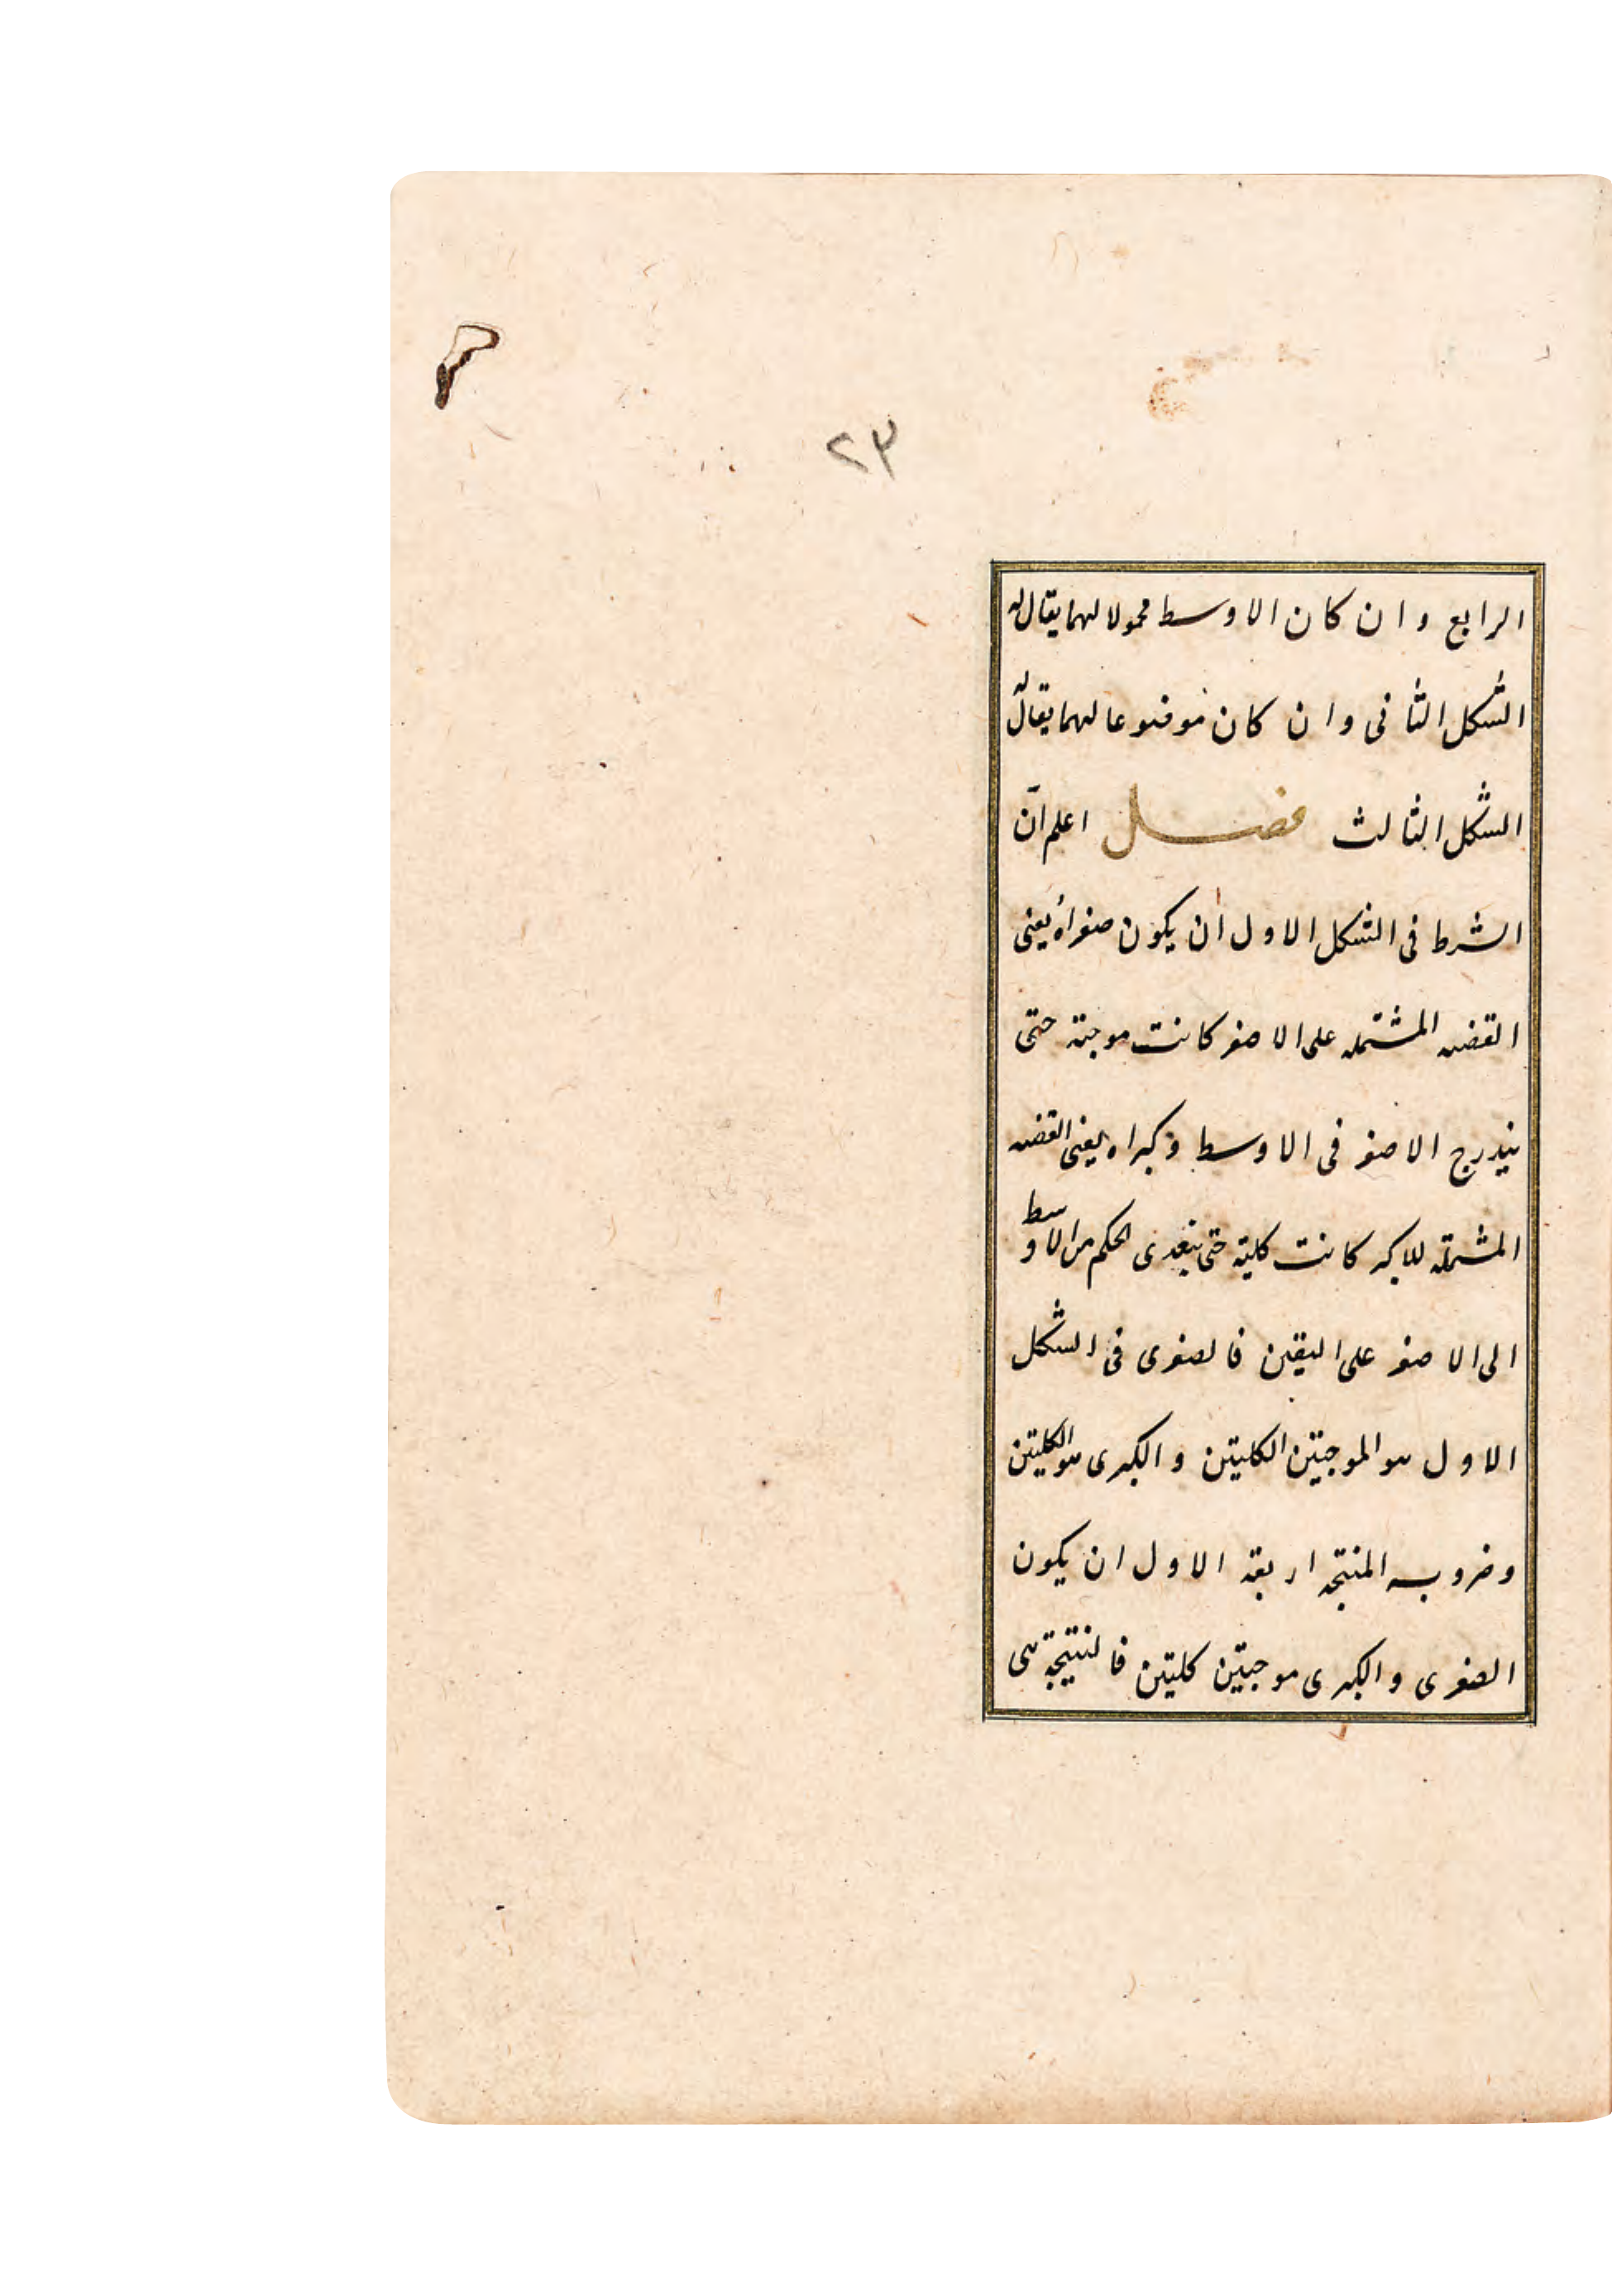 ٢٣
الرابع وان كان الاوسط محمولا لهما يقال له
الشكل الثانى وان كان موضوعا لهما يقال له
الشكل الثالث فصل اعلم ان
الشرط فى الشكل الاول ان يكون صغراه يعنى
القضيه المشتمله على الاصغر كانت موجبة حتى
يندرج الاصغر فى الاوسط و كبراه يعنى القضيه
المشتملة للاكبر كانت كلية حتى يتعدى الحكم من الاوسط
الى الاصغر على اليقين فالصغرى فى الشكل
الاول هو الموجبتين الكليتين والكبرى هو الكليتين
وضروبه المنتجه اربعة الاول ان يكون
الصغرى والكبرى موجبتين كليتين فالنتيجة هى